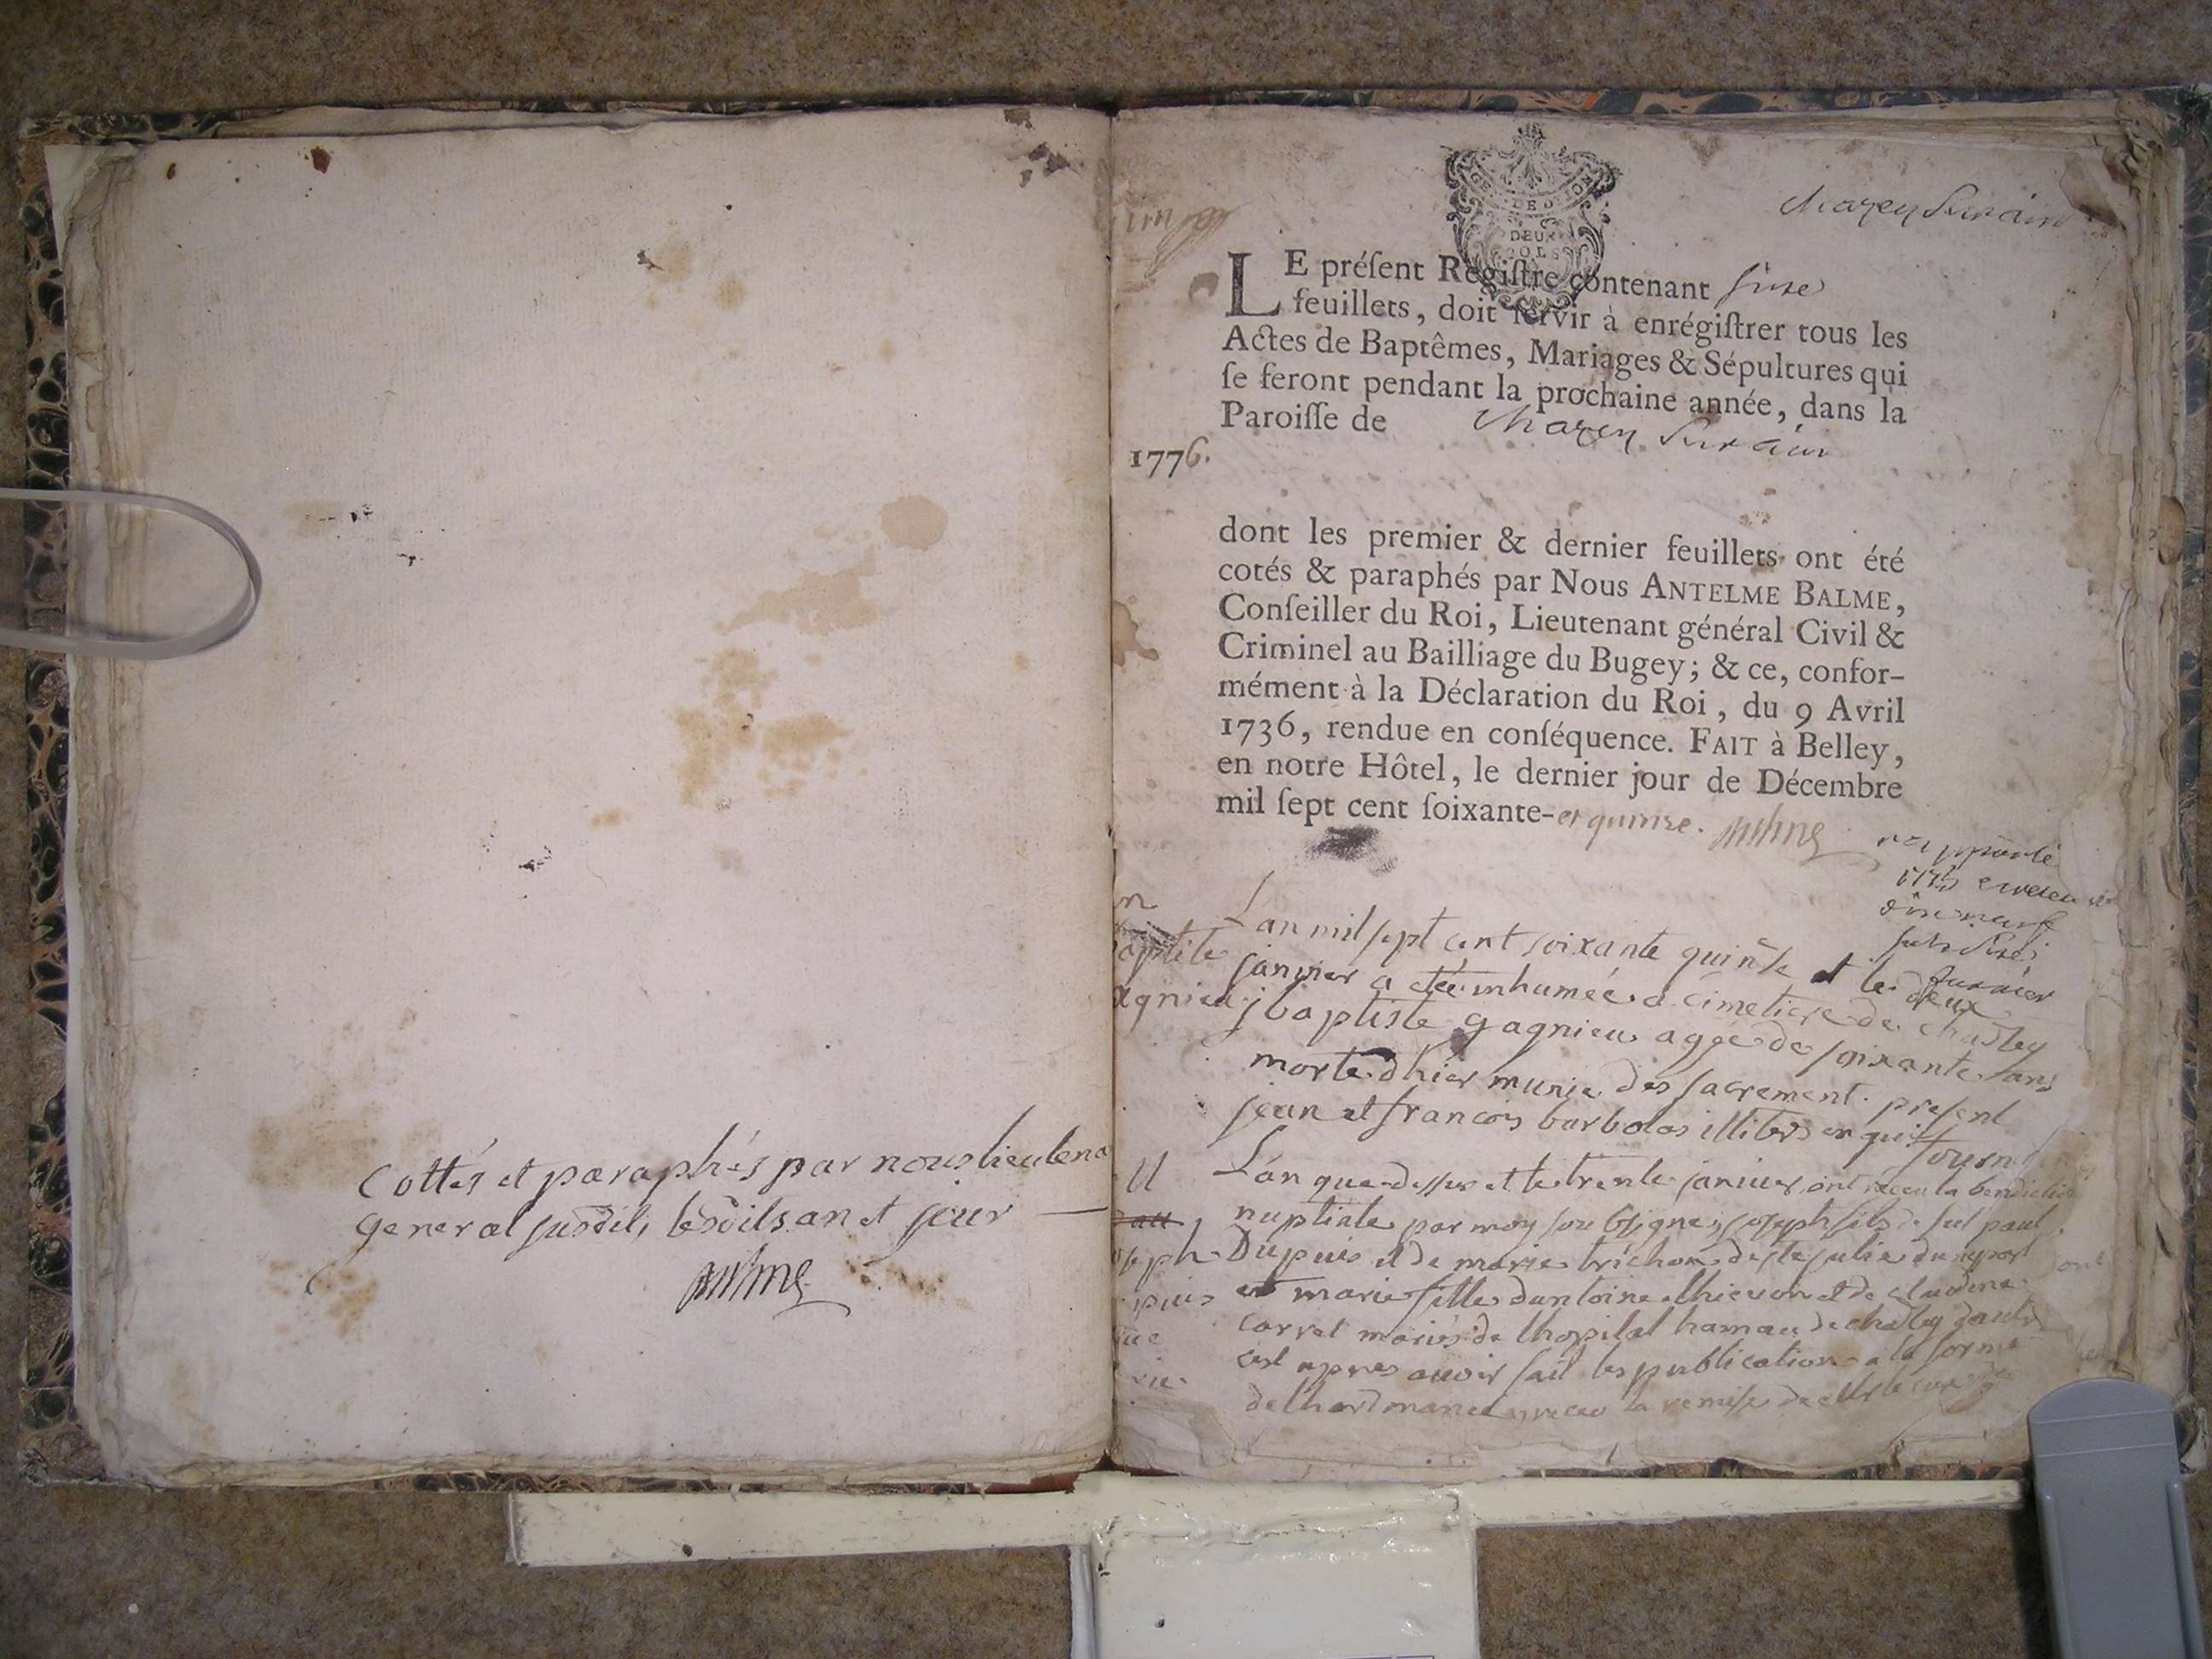 Cottés et paraphés par nous lieutena
general susdit, lesdits an et jour
GE DIJON
DE
DEUX
SOLS
chazey Surain
LE préſent Regiſtre contenant
feuillets, doit ſervir à enrégiſtrer tous les
Actes de Baptêmes, Mariages & Sépultures qui
ſe feront pendant la prochaine année, dans la
Paroiſſe de chazey Sur ain
1776.
dont les premier & dernier feuillets ont été
cotés & paraphés par Nous ANTELME BALME,
Conſeiller du Roi, Lieutenant général Civil &
Criminel au Bailliage du Bugey; & ce, confor-
mément à la Déclaration du Roi, du 9 Avril
1736, rendue en conſéquence. FAIT à Belley,
en notre Hôtel, le dernier jour de Décembre
mil ſept cent ſoixante-et quinze.
L'an mil sept cent soixante quinse et le deux
janvier a etée inhumée a cimetiere de chasey
j baptiste gagnieu agée de soixante ans
morte d'hier munie des sacrement. present
jean et francois barbolas illiteres enquis
fourn
L'an que dessus et le trente janvier ont receu la benediction
nuptiale par moy soubsigné joseph fils de feu paul
Dupuis et de marie trichon de ste julie du
et marie fille d'antoine thievon et de claudine
carret mariés de lhopital hamau de chasey
apres avoir fait les publications a la forme
de lhordonance receu la remise de